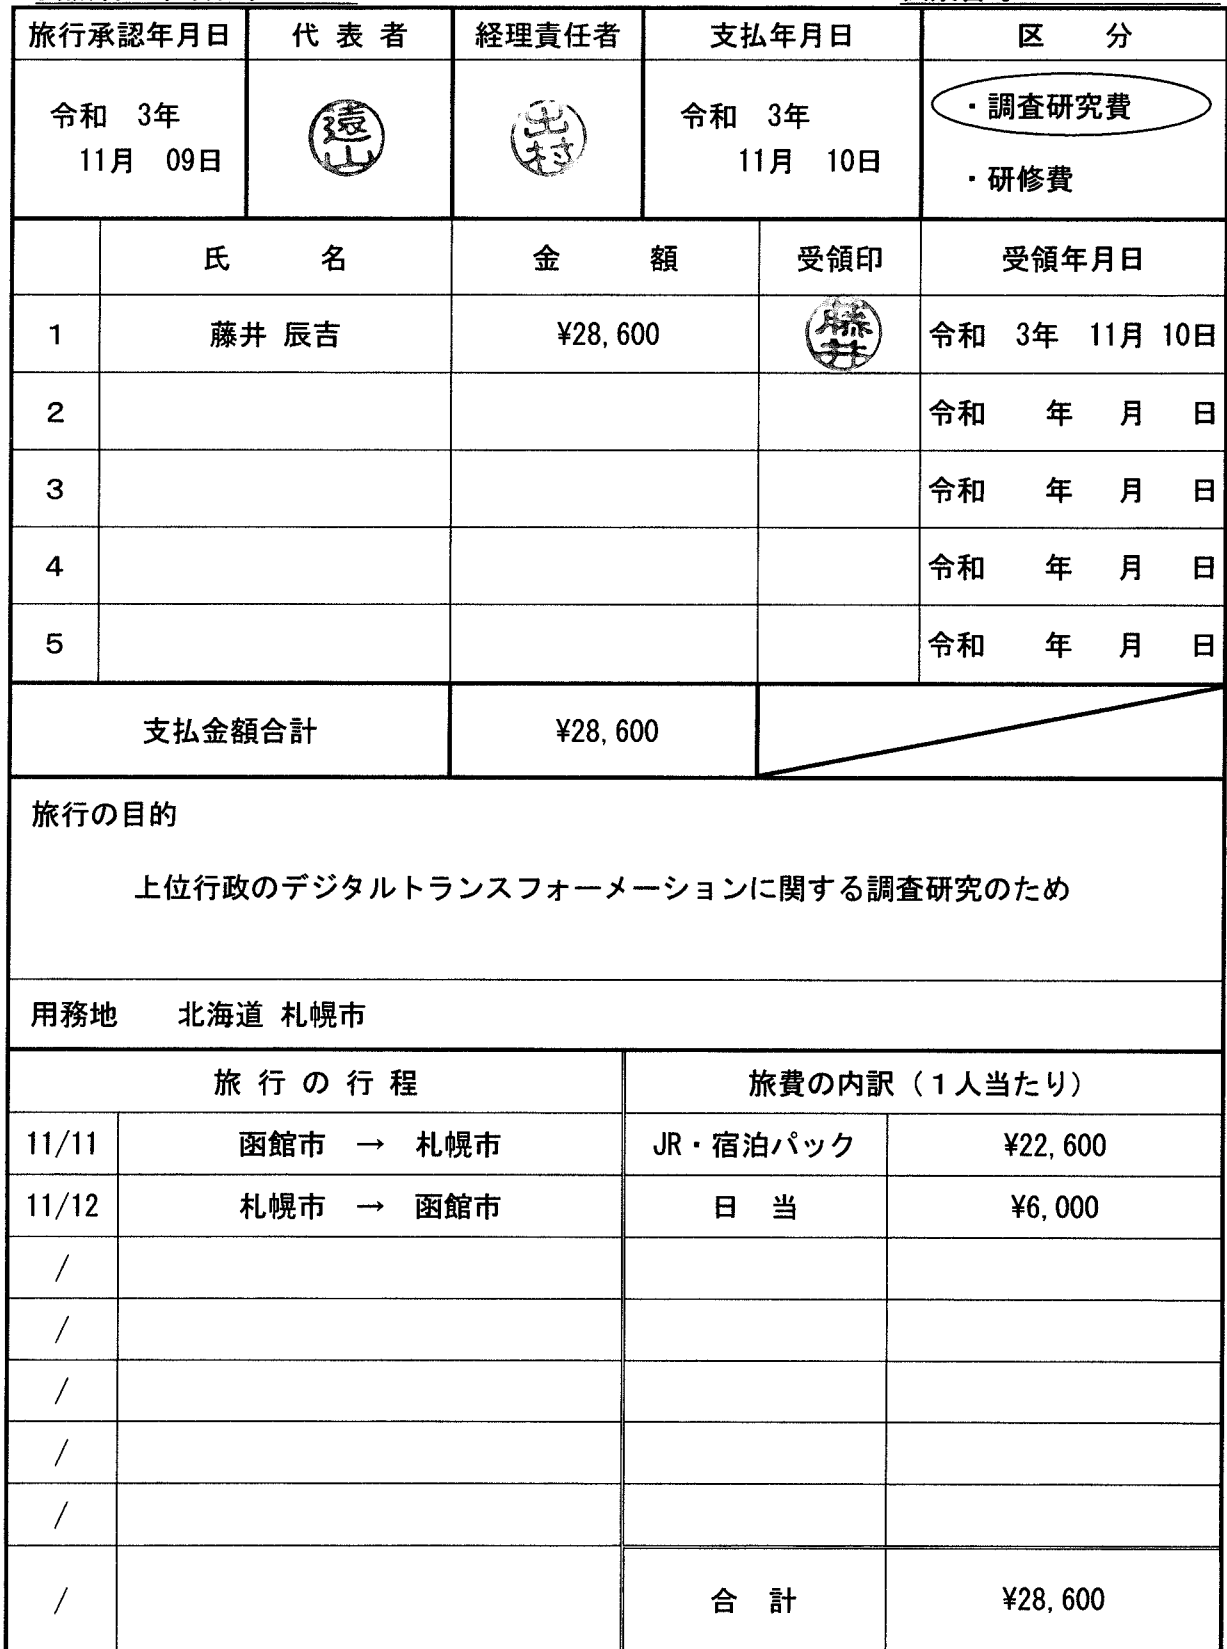 旅行承認年月日 代表者 経理責任者 支払年月日 区 分
令和 3年
11月 09日
遠山
出村
令和 3年
11月 10日
・調査研究費
・研修費
氏 名 金 額 受領印 受領年月日
1 藤井 辰吉 ¥28,600 藤井 令和 3年 11月 10日
2 令和 年 月 日
3 令和 年 月 日
4 令和 年 月 日
5 令和 年 月 日
支払金額合計 ¥28,600
旅行の目的
上位行政のデジタルトランスフォーメーションに関する調査研究のため
用務地 北海道 札幌市
旅行の行程 旅費の内訳(1人当たり)
11/11 函館市 → 札幌市 JR・宿泊パック ¥22,600
11/12 札幌市 → 函館市 日 当 ¥6,000
/
/
/
/
/
/ 合 計 ¥28,600